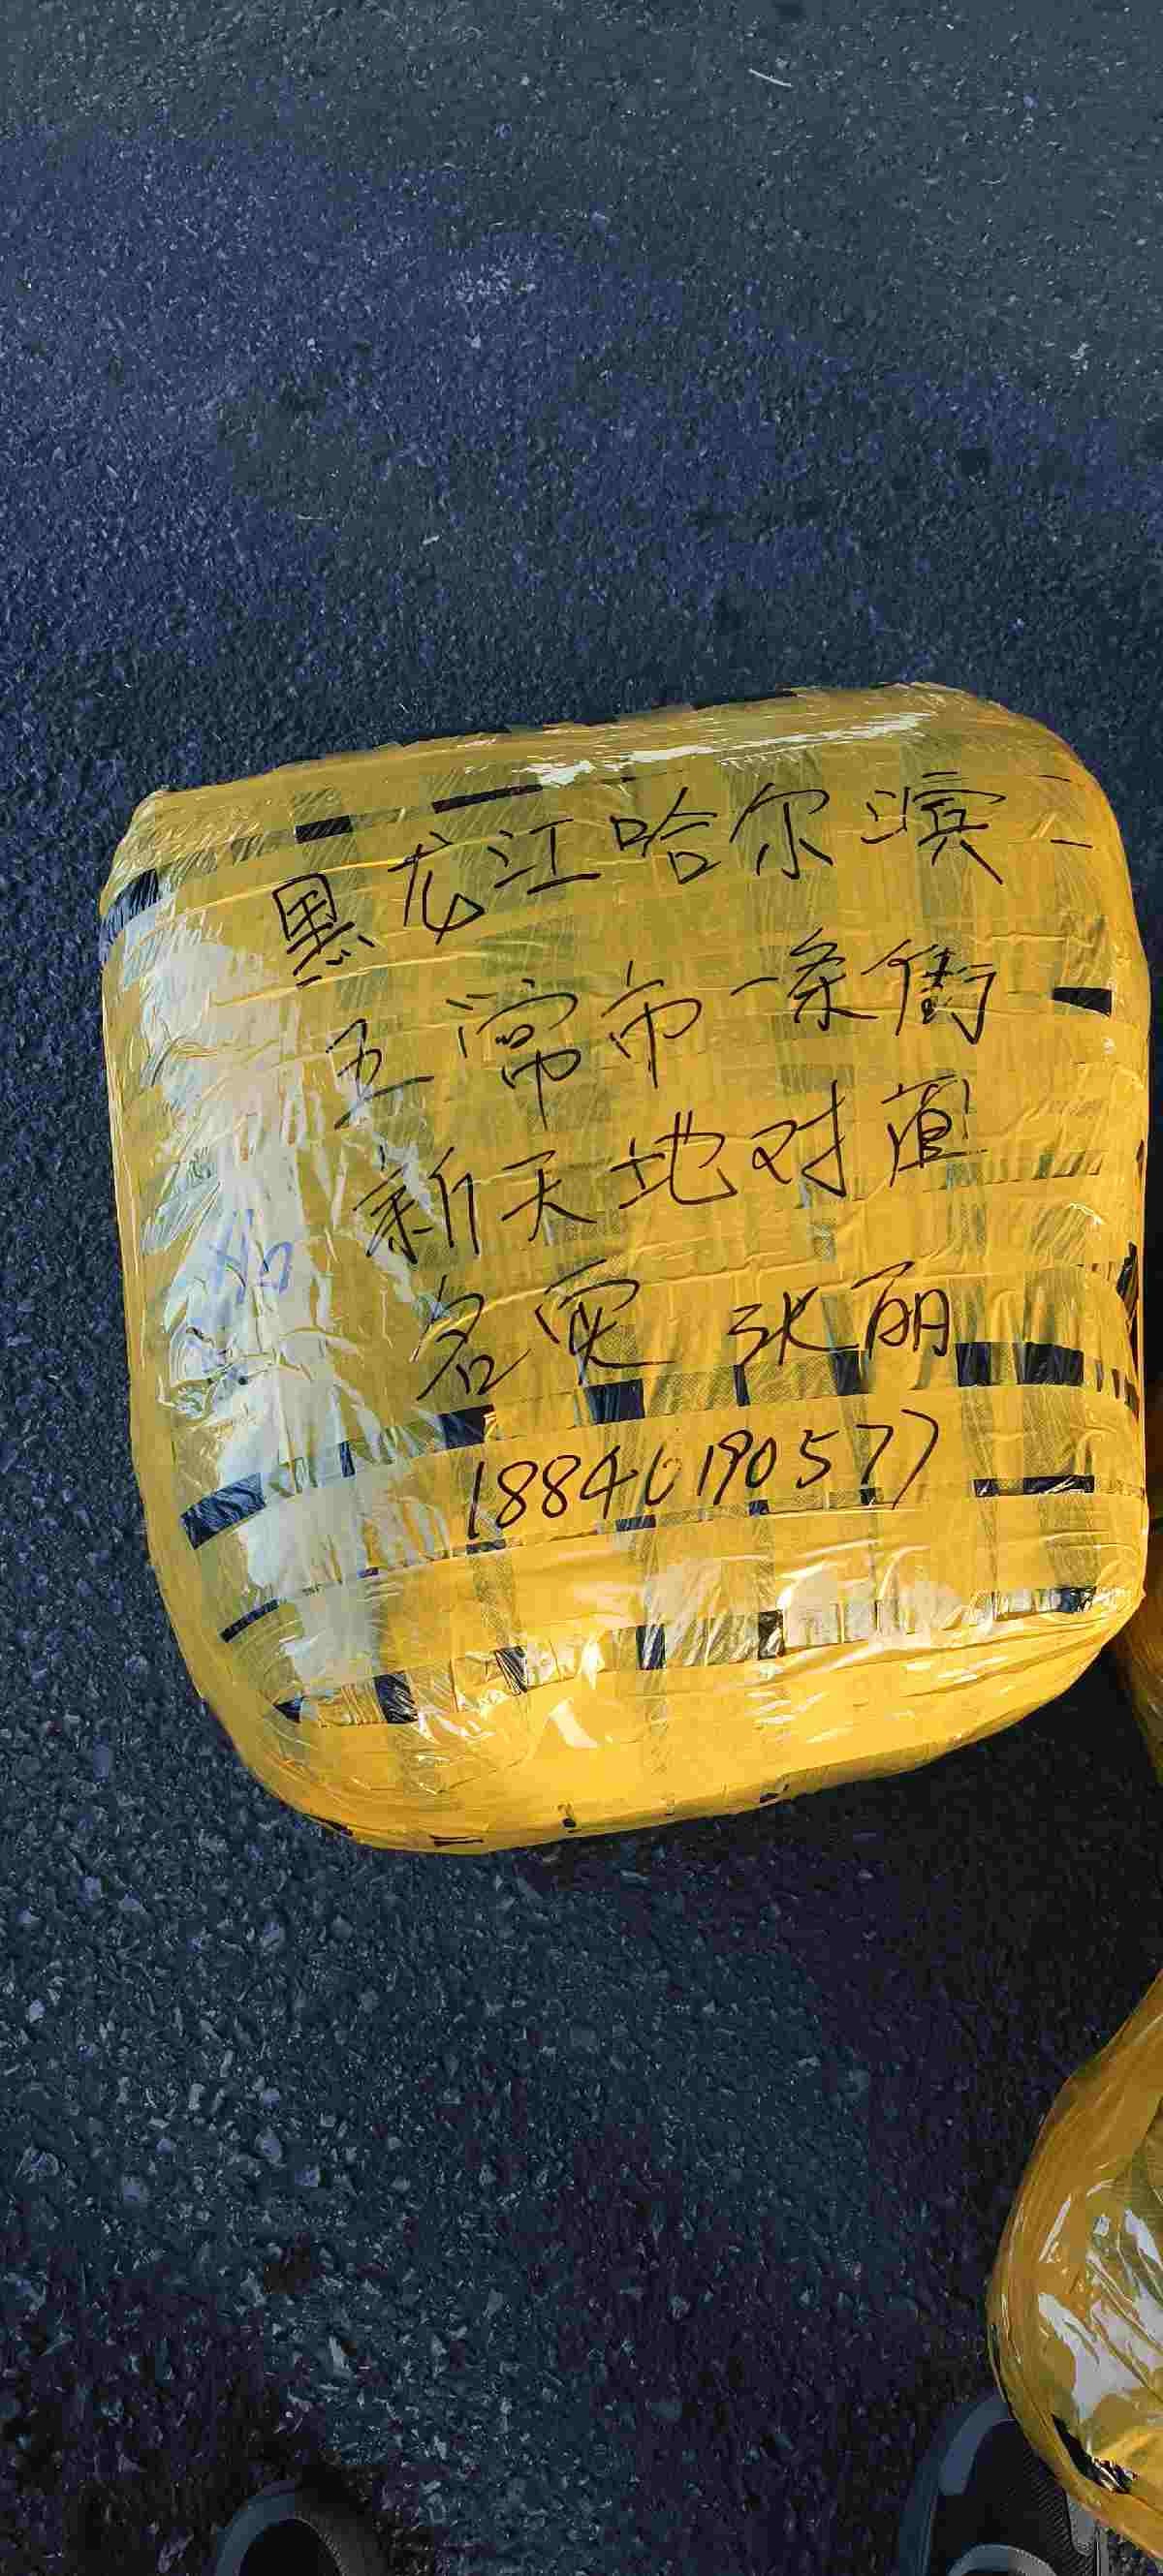 黑龙江哈尔滨
五常市一条街
新天地对面
名奕 张丽
18846190577